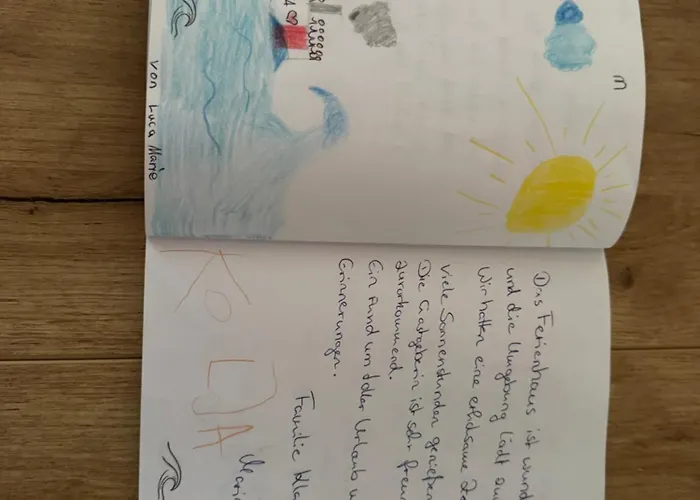 von Luca Marie
Das Ferienhaus ist
und die Umgebung lädt
Wir hatten eine erholsame
viele Sonnenstunden genießen
Die Gastgeberin ist sehr
zuvorkommend.
Ein rundum toller Urlaub
Erinnerungen.
Familie
KO
LJA